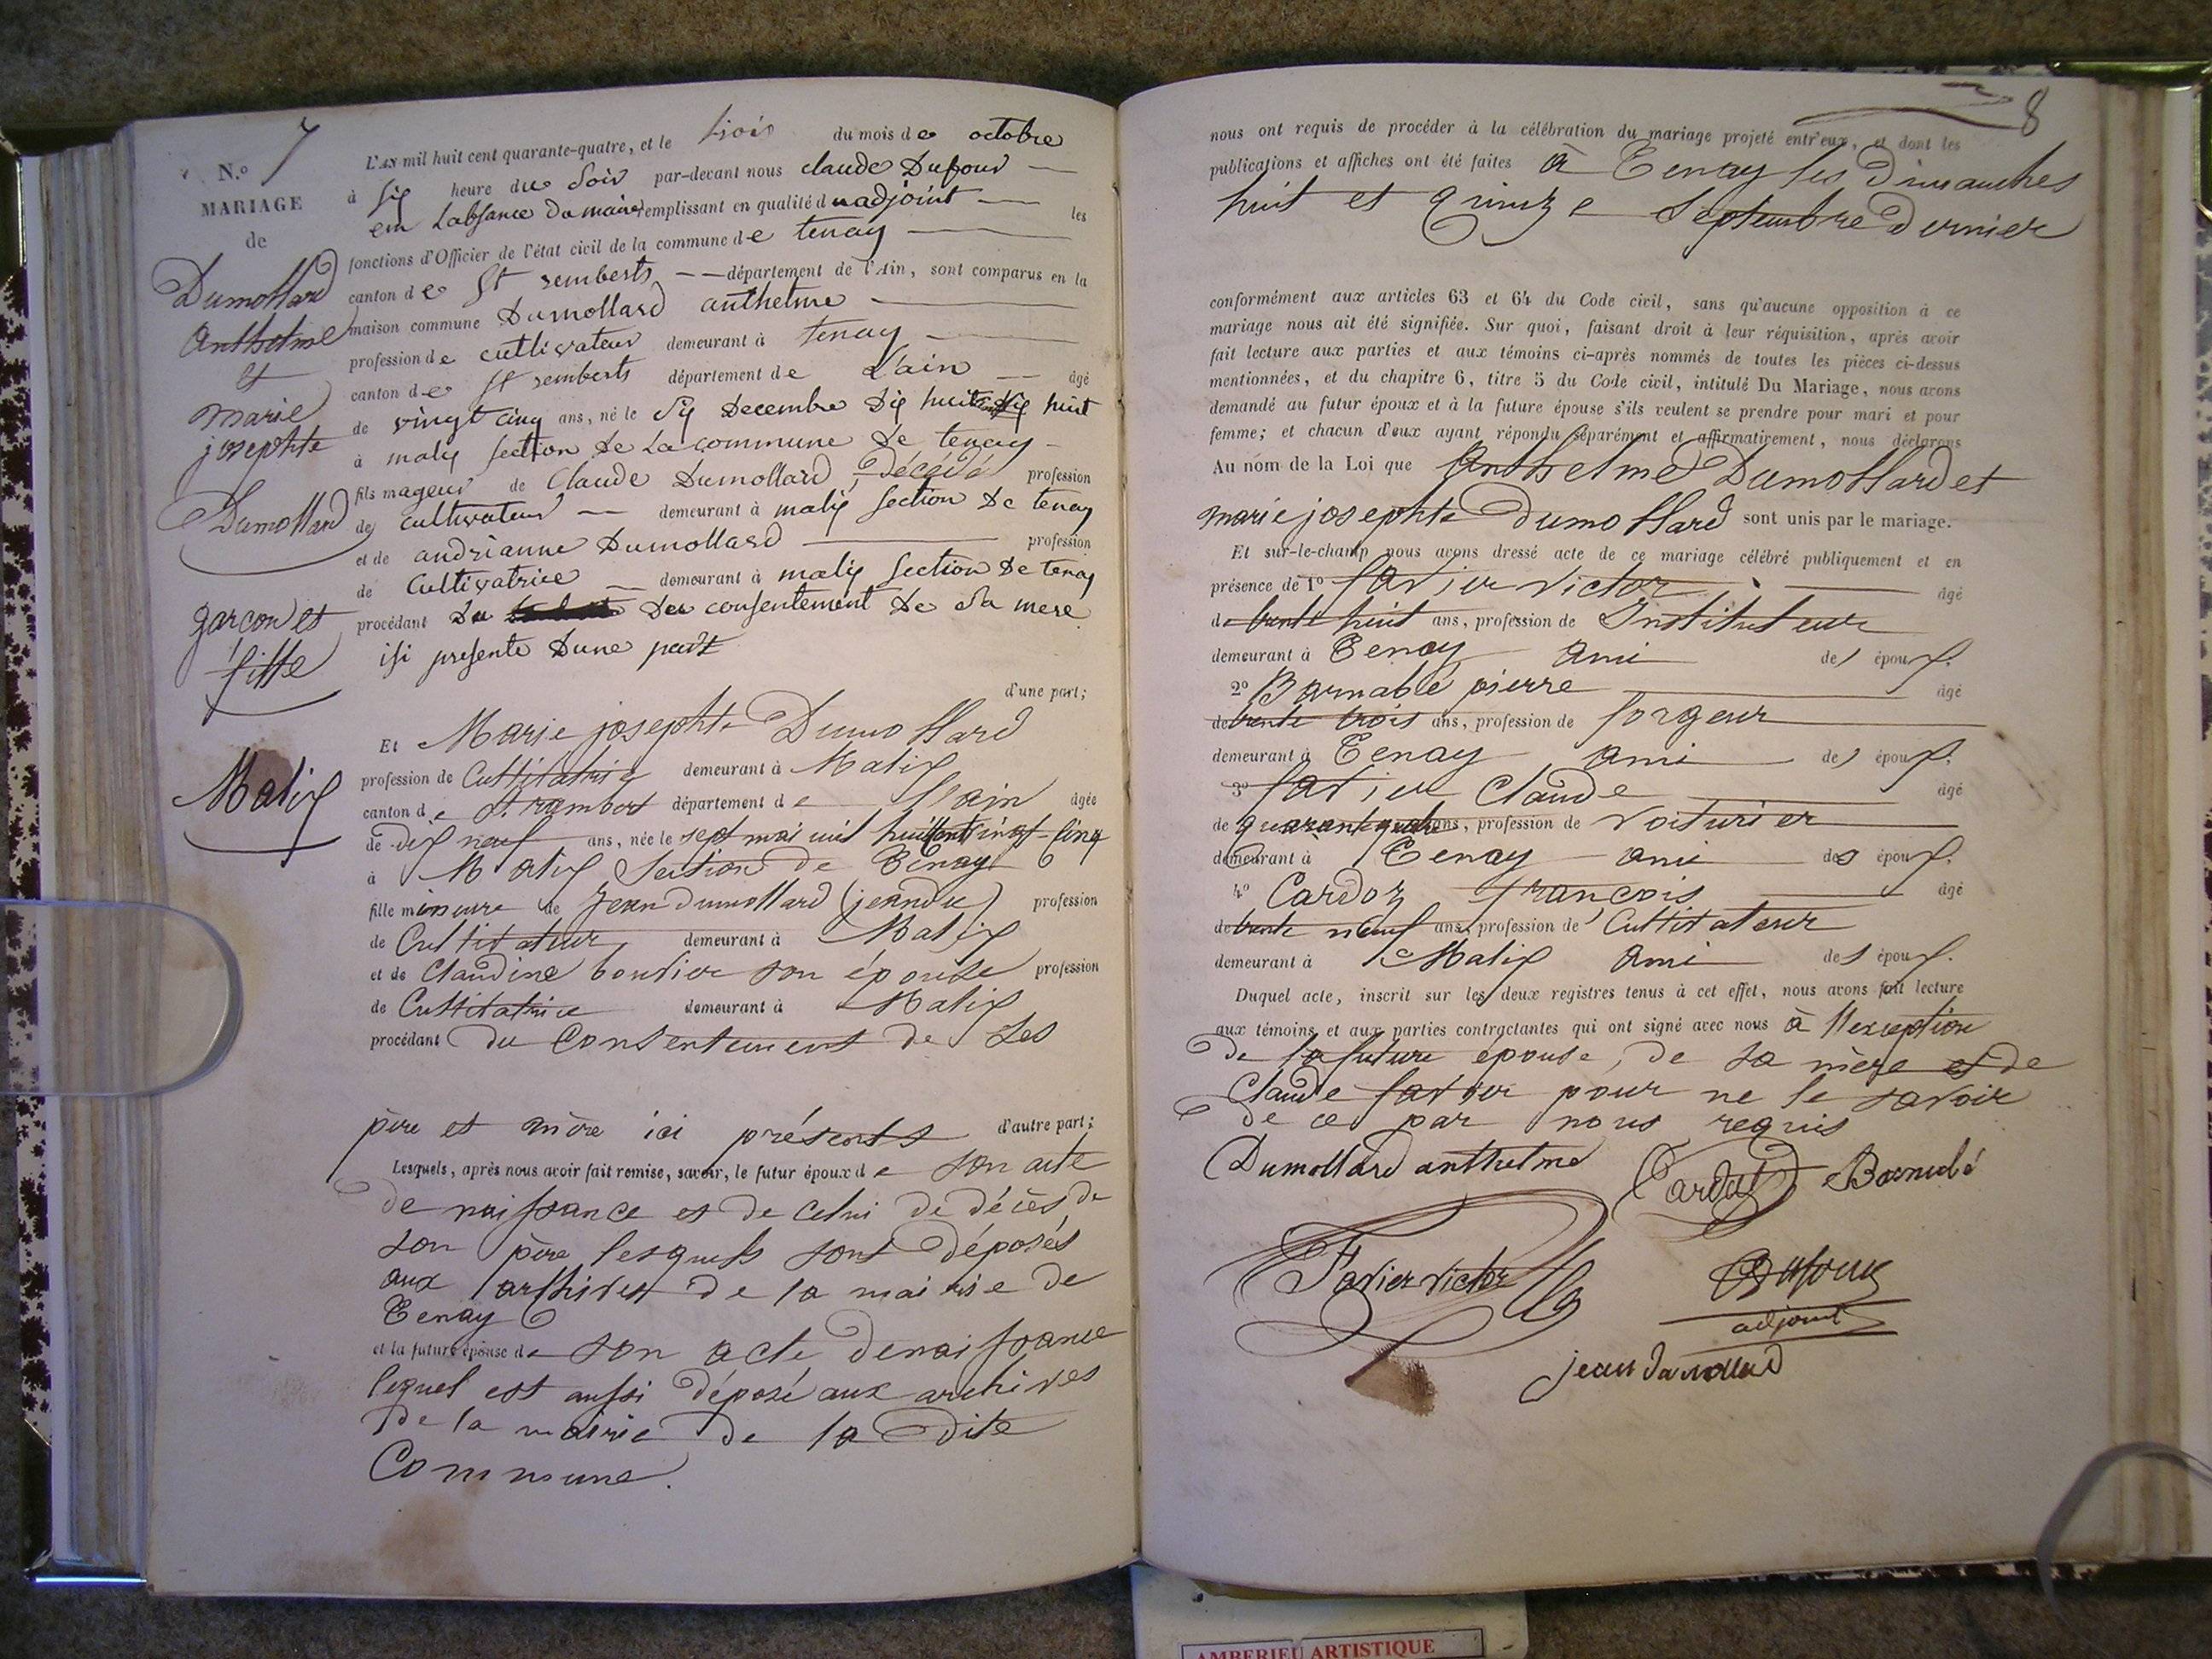 N.o 7
MARIAGE
de
Dumollard
Anthelme
et
marie
josephte
Dumollard
garçon et
fille
Malix
L'AN mil huit cent quarante-quatre, et le trois du mois de octobre
à six heure du Soir par-devant nous claude Dufour
em Labsance du maire remplissant en qualité d'uadjoint les
fonctions d'Officier de l'état civil de la commune de tenay
canton de St remberts département de l'Ain, sont comparus en la
maison commune Dumollard anthelme
profession de cultivateur demeurant à tenay
canton de St remberts département de L'ain âgé
de vingt cinq ans, né le Six Decembre Dix huit cent Dix huit
à malix section De La commune De tenay
fils mageur de Claude Dumollard, Décédé profession
de cultivateur demeurant à malix Section De tenay
et de andrianne Dumollard profession
de Cultivatrice demeurant à malix Section De tenay
procédant Du Du consentement De Sa mere
isi presente Dune part
d'une part;
Et Marie josephte Dumollard
profession de Cultivatrice demeurant à Malix
canton de St. rambert département de l'ain âgée
de dix neuf ans, née le sept mai mil huit cent vingt-cinq
à Malix Section de Tenay
fille mineure de Jean Dumollard (jeandu) profession
de Cultivateur demeurant à Malix
et de Claudine bouvier son épouse profession
de Cultivatrice demeurant à Malix
procédant du Consentement de ses
père et mère ici présents d'autre part;
Lesquels, après nous avoir fait remise, savoir, le futur époux de son acte
de naissance et de celui de décès de
son père lesquels sont déposés
aux archives de la mairie de
Tenay
et la future épouse de son acte de naissance
lequel est aussi déposé aux archives
de la mairie de la dite
Commune.
8
nous ont requis de procéder à la célébration du mariage projeté entr'eux, et dont les
publications et affiches ont été faites à Tenay les Dimanches
huit et quinze Septembre Dernier
conformément aux articles 63 et 64 du Code civil, sans qu'aucune opposition à ce
mariage nous ait été signifiée. Sur quoi, faisant droit à leur réquisition, après avoir
fait lecture aux parties et aux témoins ci-après nommés de toutes les pièces ci-dessus
mentionnées, et du chapitre 6, titre 5 du Code civil, intitulé Du Mariage, nous avons
demandé au futur époux et à la future épouse s'ils veulent se prendre pour mari et pour
femme; et chacun d'eux ayant répondu séparément et affirmativement, nous déclarons
Au nom de la Loi que Anthelme Dumollard et
marie josephte Dumollard sont unis par le mariage.
Et sur-le-champ nous avons dressé acte de ce mariage célébré publiquement et en
présence de 1o favier victor, âgé
de trente huit ans, profession de Instituteur
demeurant à Tenay ami des époux.
2o Barnabé pierre âgé
de trente trois ans, profession de forgeur
demeurant à Tenay ami des époux.
3o favier Claude âgé
de quarante quatre ans, profession de Voiturier
demeurant à Tenay ami des époux.
4o Cardoz françois âgé
de trente neuf ans, profession de Cultivateur
demeurant à Malix ami des époux.
Duquel acte, inscrit sur les deux registres tenus à cet effet, nous avons fait lecture
aux témoins et aux parties contractantes qui ont signé avec nous à l'exception
de la future épouse, de sa mère et de
Claude favier pour ne le savoir
de ce par nous requis
Dumollard anthelme Cardot Barnabé
Favier victor Dufour
adjoint
jean dumollard
AMBERIEU ARTISTIQUE